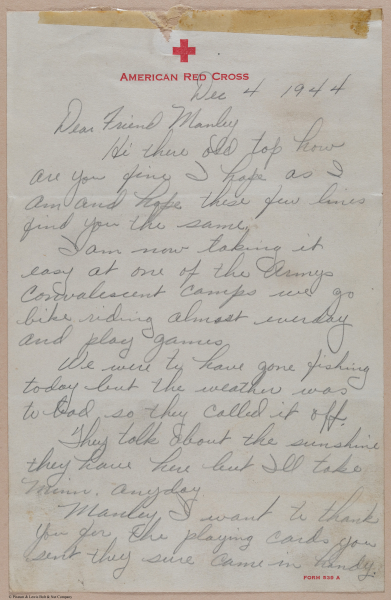 AMERICAN RED CROSS
Dec 4 1944
Dear Friend Manley
Hi there old top how
are you fine I hope as I
am and hope these few lines
find you the same,
I am now taking it
easy at one of the Armys
Convalescent camps we go
bike riding almost everday
and play games.
We were to have gone fishing
today but the weather was
to bad, so they called it off.
They talk about the sunshine
they have here but I'll take
Minn. anyday
Manley I want to thank
you for the playing cards you
sent they sure came in handy.
FORM 539 A